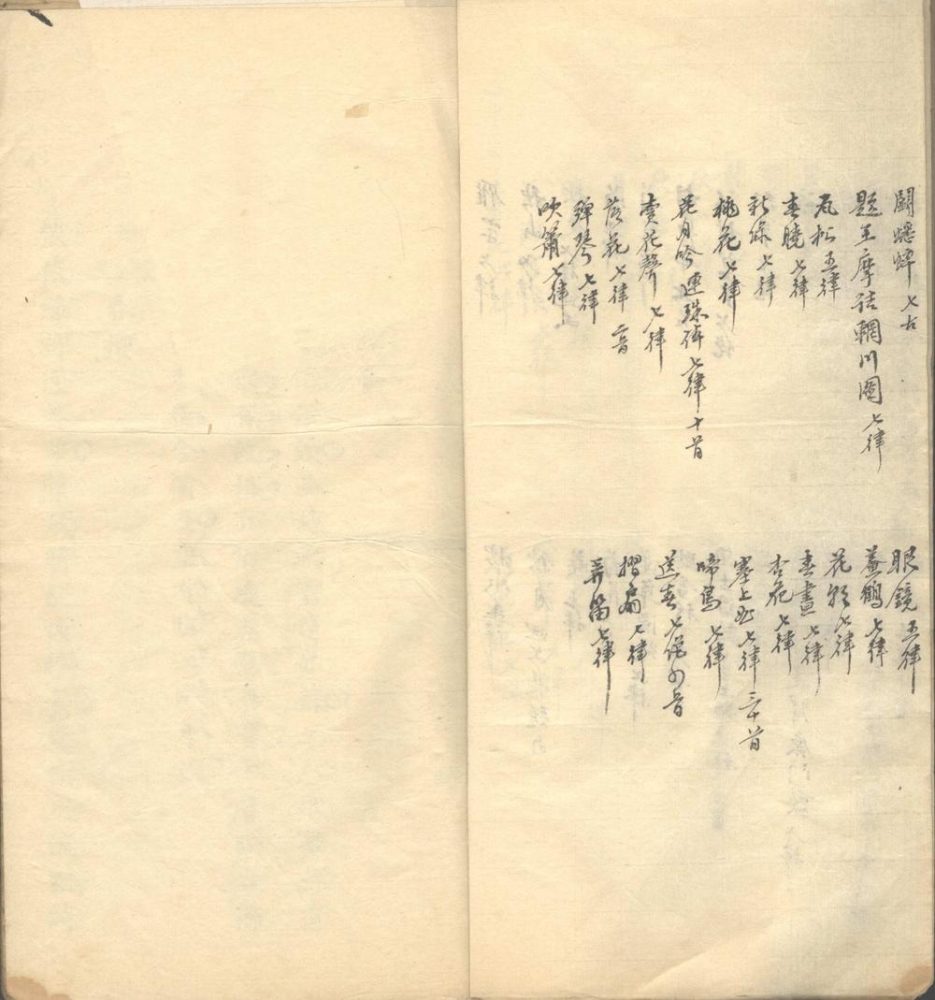 鬬蟋蟀 七古
題王摩詰輞川圖 七律
瓦松 五律
春曉 七律
新綠 七律
桃花 七律
花月吟連珠體 七律 十首
賣花聲 七律
落花 七律 二首
彈琴 七律
吹簫 七律
眼鏡 五律
七律
花影 七律
春晝 七律
杏花 七律
塞上曲 七律 三十首
啼鳥 七律
送春 七絕 四首
摺扇 七律
弄笛 七律